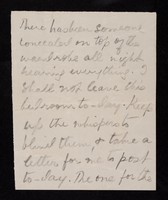 There has been someone
concealed on top of the
wardrobe all night
hearing everything. I
shall not leave this
bedroom to-day. Keep
up the whispers to
blind them, & take a
letter for me to post
to-day. The one for the